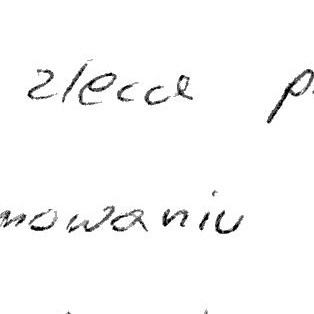 zleca p
mowaniu